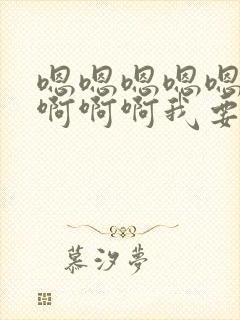 嗯嗯嗯嗯嗯
啊啊啊我要
慕汐夢